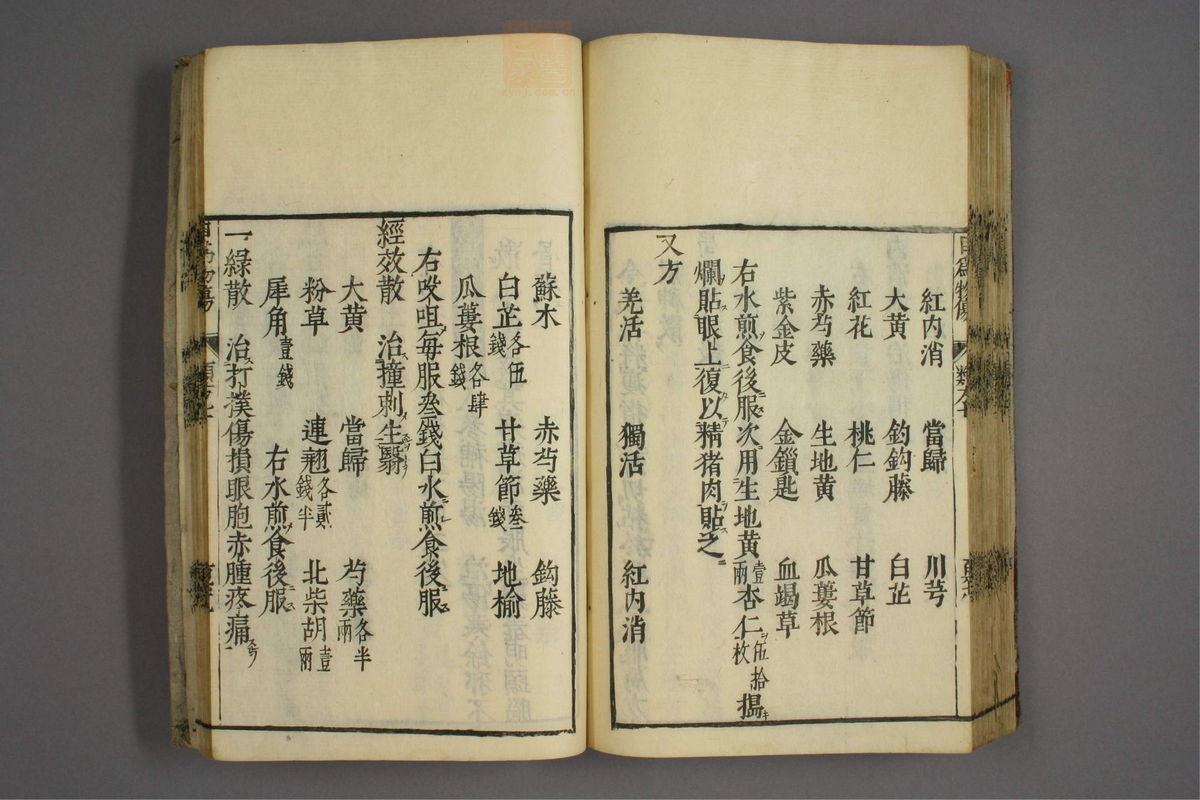 紅内消　當歸　川芎
大黄　鈎鈎藤　白芷
紅花　桃仁　甘草節
赤芍藥　生地黄　瓜蔞根
紫金皮　金鎖匙　血竭草
右水煎食後服次用生地黄壹兩杏仁伍拾枚搗
爛貼眼上復以精猪肉貼之
又方
羌活　獨活　紅内消
蘇木　赤芍藥　鈎藤
白芷各伍錢　甘草節叁錢　地榆
瓜蔞根各肆錢
右㕮咀每服叁錢白水煎食後服
經效散　治撞刺生翳
大黄　當歸　芍藥各半兩
粉草　連翹各貳錢半　北柴胡壹兩
犀角壹錢　右水煎食後服
一緑散　治打撲傷損眼胞赤腫疼痛